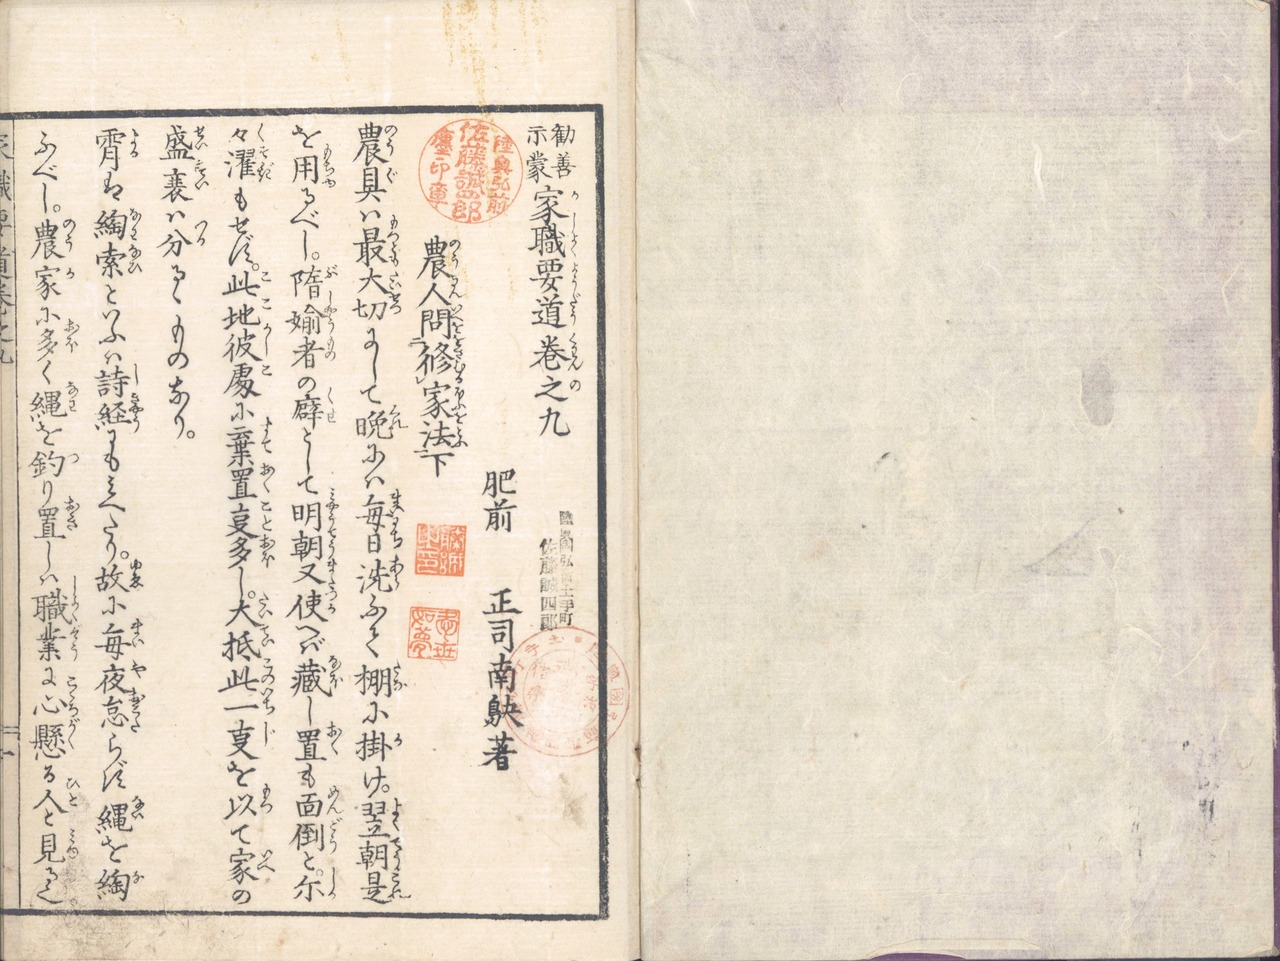 勧善
示蒙
家職要道巻之九
肥前 正司南鴃著
農人問修家法下
農具ハ最大切にして晩にハ毎日洗ふて棚に掛け。翌朝是
を用るべし。隋媮者の癖として明朝又使へバ蔵し置も面倒と。尓
々濯もせず。此地彼処に棄置事多し。大抵此一事を以て家の
盛衰ハ分るゝものなり。
宵は綯索といふハ詩経にもみへたり。故に毎夜怠らず縄を綯
ふべし。農家に多く縄を釣り置しハ職業に心懸る人と見るべ
陸奥弘前
佐藤誠四郎
佐藤誠四郎
家職要道巻之九
一